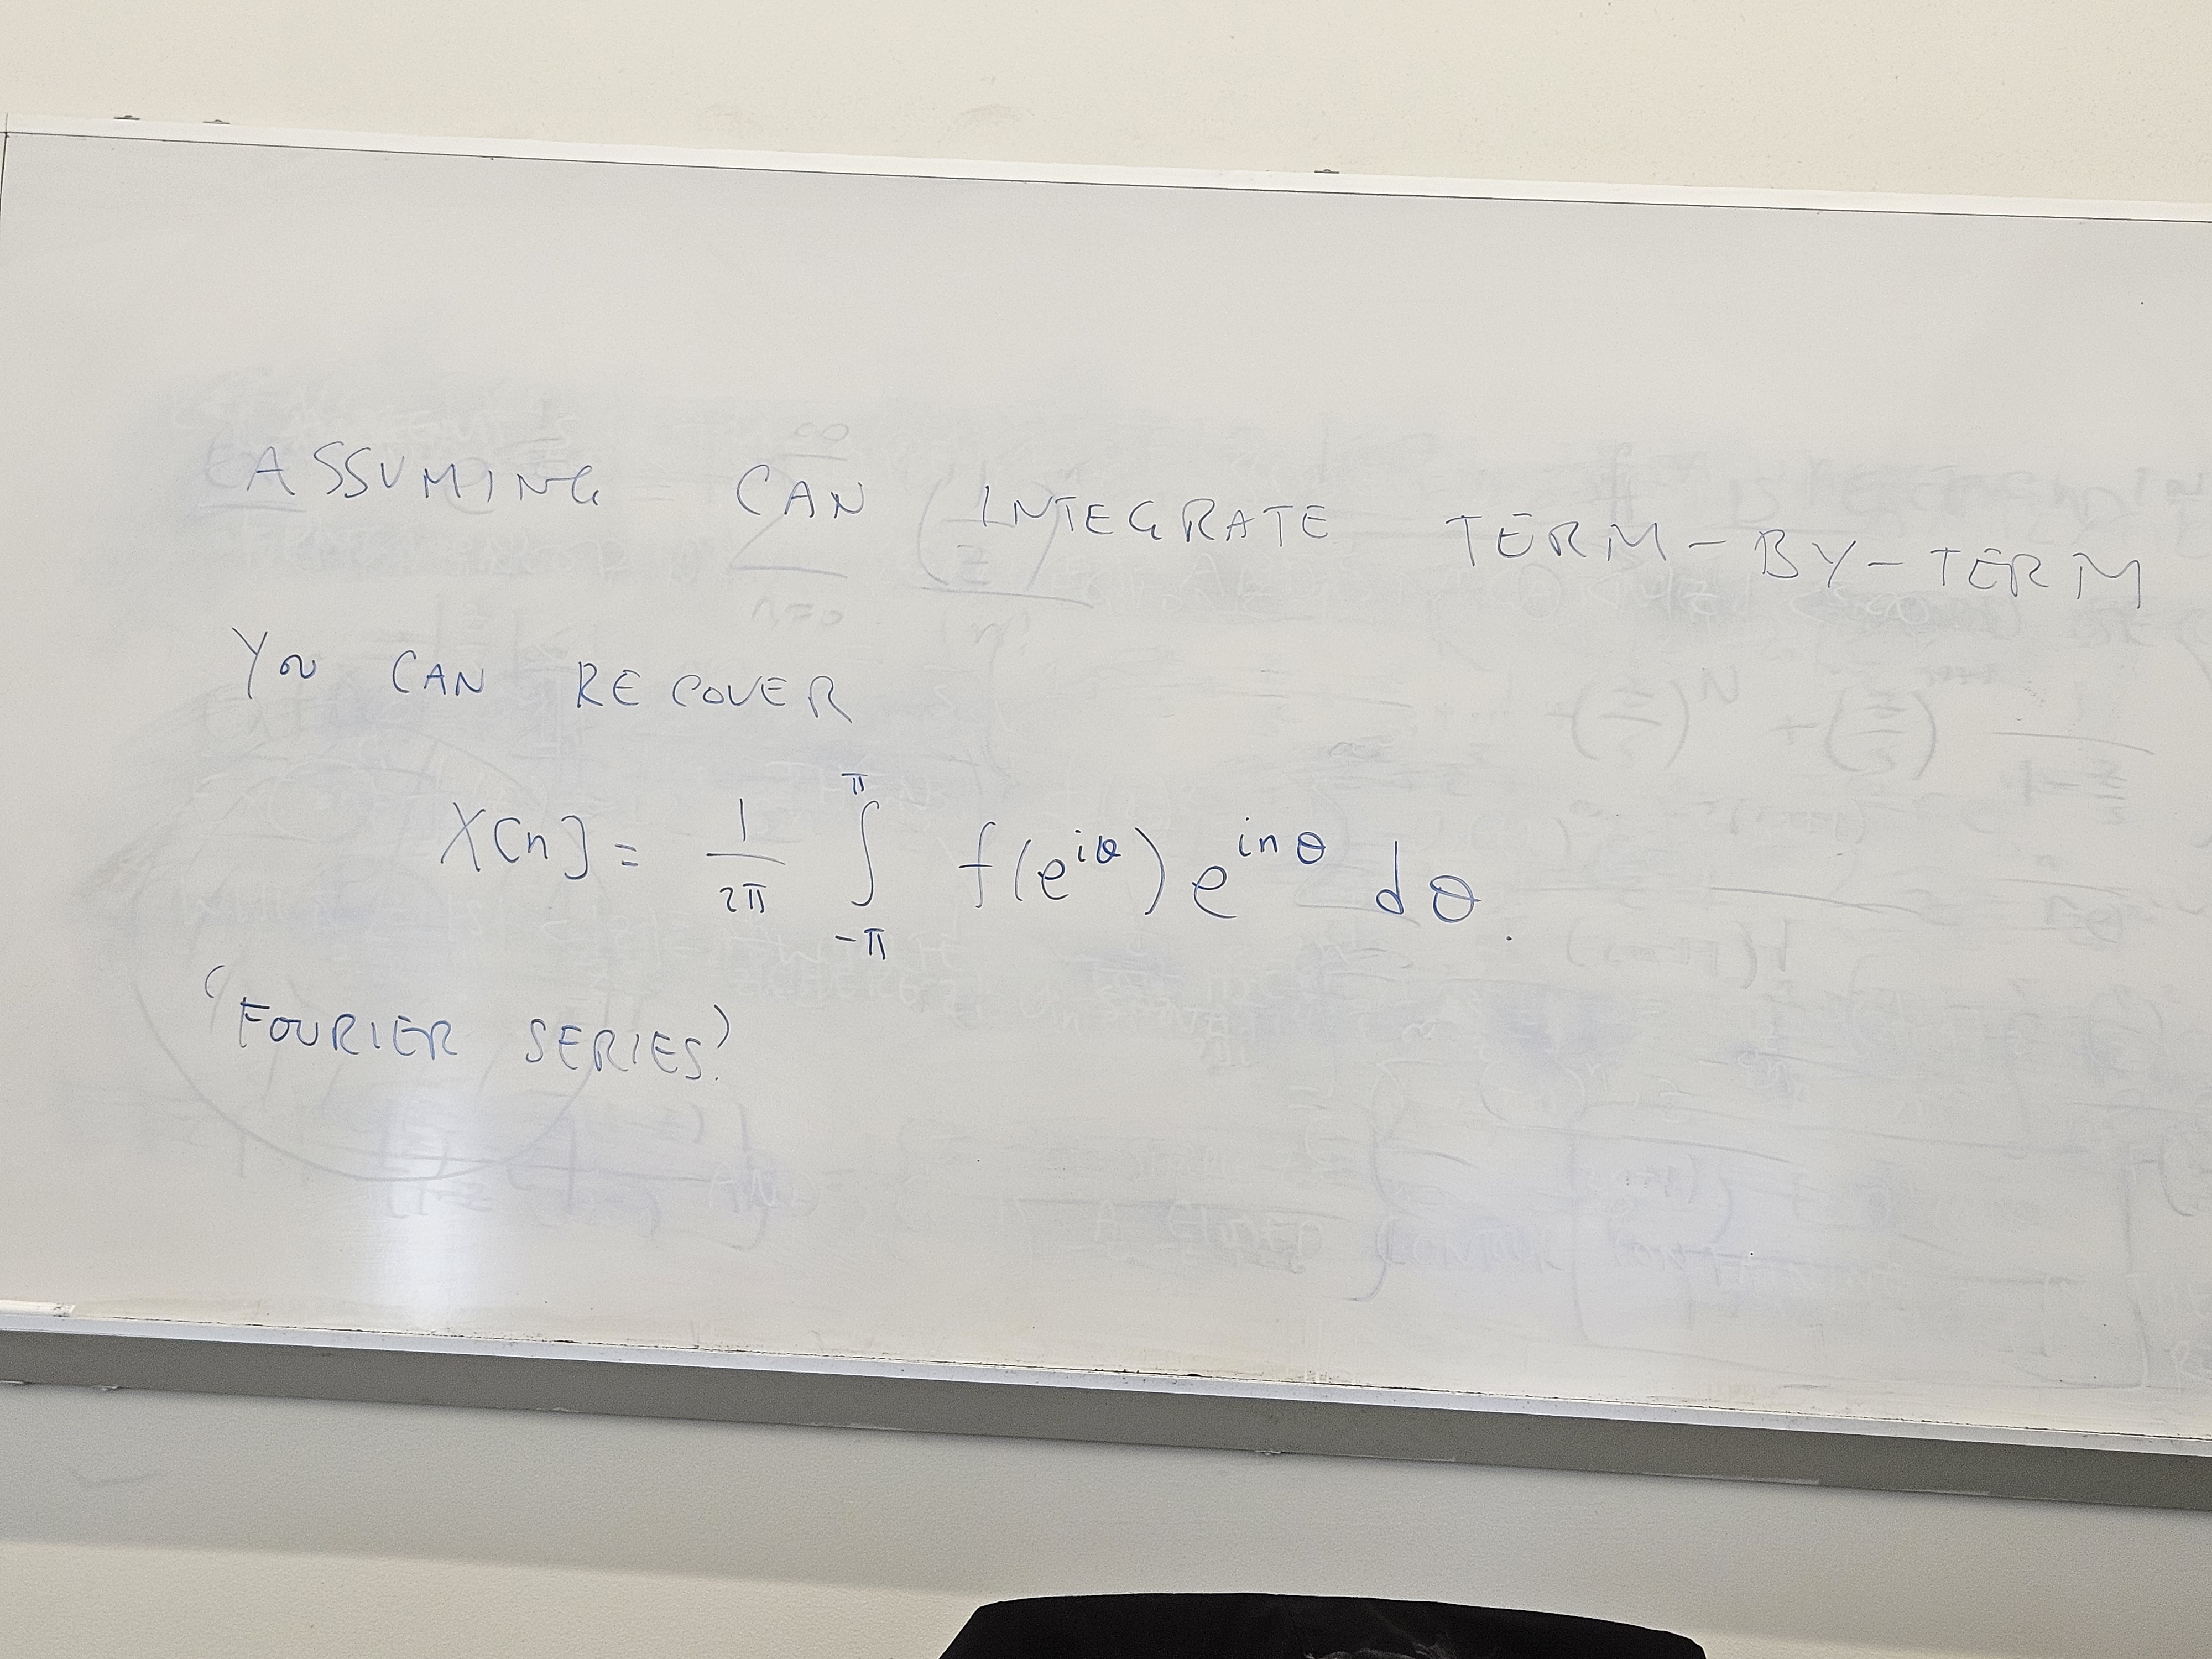 ASSUMING CAN INTEGRATE TERM-BY-TERM
YOU CAN RECOVER
X[n] = \frac{1}{2π} \int_{-π}^{π} f(e^{iθ}) e^{inθ} dθ.
(FOURIER SERIES.)